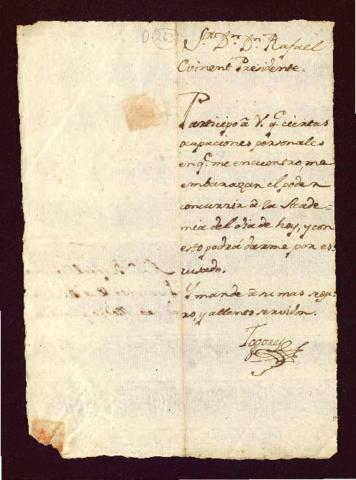 Sr. Dr. Dn. Rafael
Coinent Presidente.
Participo â V. q.e ciertas
ocupaciones personales
en q.e me encuentro, me
embarazan el poder
concurrir â la Acade-
mia del dia de hoy, y con
esto podrá darme por es
cusado.
Y mande à su mas segu
ro, y attento servidor.
Togores